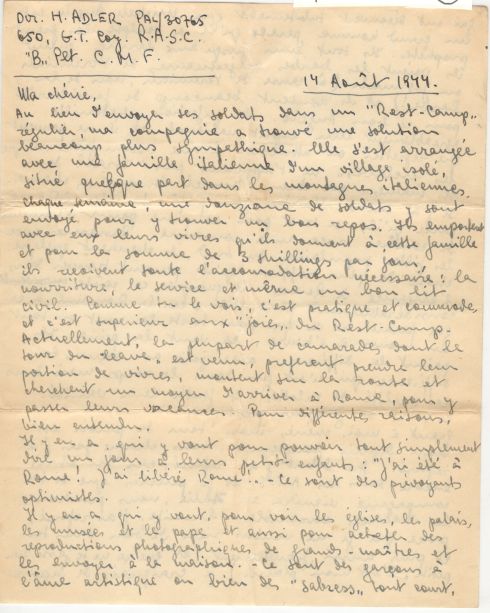 Dvr. H. ADLER PAL/30765
650, G.T. Coy. R.A.S.C.
"B„ Plt. C. M. F.
14 Août 1944.
Ma chérie,
Au lieu d'envoyer ses soldats dans un "Rest-Camp„
régulier, ma compagnie a trouvé une solution
beaucoup plus sympathique. Elle s'est arrangée
avec une famille italienne d'un village isolé,
situé quelque part dans les montagnes italiennes.
Chaque semaine, une douzaine de soldats y sont
envoyé pour y trouver un bon repos. Ils emportent
avec eux leurs vivres qu'ils donnent à cette famille
et pour la somme de 3 shillings par jour,
ils reçoivent toute l'accomodation nécessaire: la
nourriture, le service et même un bon lit
civil. Comme tu le vois, c'est pratique et commode,
et c'est supérieur aux "joies„ du Rest-Camp.
Actuellement, la plupart de camarades dont le
tour du leave, est venu, préfèrent prendre leur
portion de vivres, montent sur la route et
cherchent un moyen d'arriver à Rome, pour y
passer leurs vacances. Pour différentes raisons,
bien entendu.
Il y en a, qui y vont pour pouvoir tout simplement
dire un jour à leurs petits-enfants: "J'ai été à
Rome! J'ai libéré Rome„. - Ce sont des prévoyants
optimistes.
Il y en a qui y vont, pour voir les églises, les palais,
les musées et le pape et aussi pour acheter des
reproductions photographiques de grands-maîtres et
les envoyer à la maison. - Ce sont des garçons à
l'âme artistique ou bien des "sabress„ tout court.